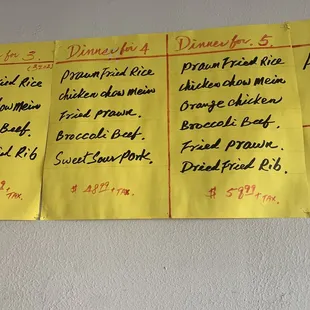 for 3
ied Rice
ow Mein
Beef.
ied Rib
+ TAX.
Dinner for 4
Prawn Fried Rice
chicken chow mein
Fried prawn.
Broccali Beef.
Sweet Sour Pork.
$ 48.99 + TAX.
Dinner for 5
Prawn Fried Rice
chicken chow mein
Orange chicken
Broccali Beef.
Fried prawn.
Dried Fried Rib.
$ 58.99 + TAX.